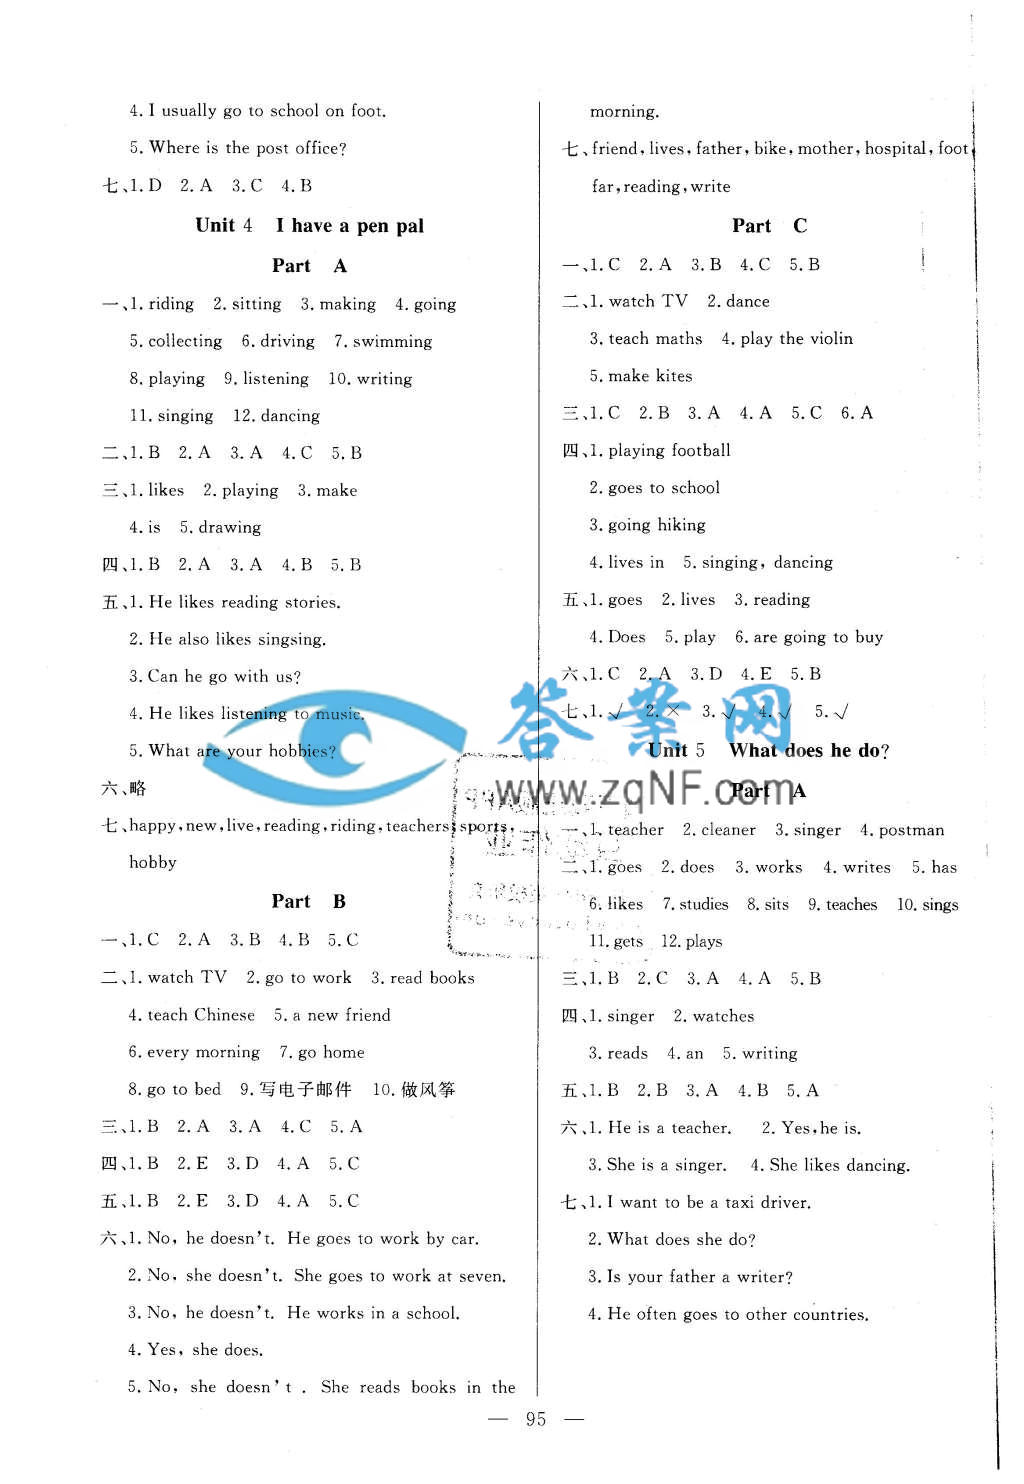 4. I usually go to school on foot.
5. Where is the post office?
七、1. D 2. A 3. C 4. B
Unit 4 I have a pen pal
Part A
一、1. riding 2. sitting 3. making 4. going
5. collecting 6. driving 7. swimming
8. playing 9. listening 10. writing
11. singing 12. dancing
二、1. B 2. A 3. A 4. C 5. B
三、1. likes 2. playing 3. make
4. is 5. drawing
四、1. B 2. A 3. A 4. B 5. B
五、1. He likes reading stories.
2. He also likes singsing.
3. Can he go with us?
4. He likes listening to music.
5. What are your hobbies?
六、略
七、happy, new, live, reading, riding, teachers, sports,
hobby
Part B
一、1. C 2. A 3. B 4. B 5. C
二、1. watch TV 2. go to work 3. read books
4. teach Chinese 5. a new friend
6. every morning 7. go home
8. go to bed 9. 写电子邮件 10. 做风筝
三、1. B 2. A 3. A 4. C 5. A
四、1. B 2. E 3. D 4. A 5. C
五、1. B 2. E 3. D 4. A 5. C
六、1. No, he doesn't. He goes to work by car.
2. No, she doesn't. She goes to work at seven.
3. No, he doesn't. He works in a school.
4. Yes, she does.
5. No, she doesn't. She reads books in the
morning.
七、friend, lives, father, bike, mother, hospital, foot,
far, reading, write
Part C
一、1. C 2. A 3. B 4. C 5. B
二、1. watch TV 2. dance
3. teach maths 4. play the violin
5. make kites
三、1. C 2. B 3. A 4. A 5. C 6. A
四、1. playing football
2. goes to school
3. going hiking
4. lives in 5. singing, dancing
五、1. goes 2. lives 3. reading
4. Does 5. play 6. are going to buy
六、1. C 2. A 3. D 4. E 5. B
七、1. √ 2. × 3. √ 4. √ 5. √
Unit 5 What does he do?
Part A
一、1. teacher 2. cleaner 3. singer 4. postman
二、1. goes 2. does 3. works 4. writes 5. has
6. likes 7. studies 8. sits 9. teaches 10. sings
11. gets 12. plays
三、1. B 2. C 3. A 4. A 5. B
四、1. singer 2. watches
3. reads 4. an 5. writing
五、1. B 2. B 3. A 4. B 5. A
六、1. He is a teacher. 2. Yes, he is.
3. She is a singer. 4. She likes dancing.
七、1. I want to be a taxi driver.
2. What does she do?
3. Is your father a writer?
4. He often goes to other countries.
— 95 —
答案网
www.zqNF.com